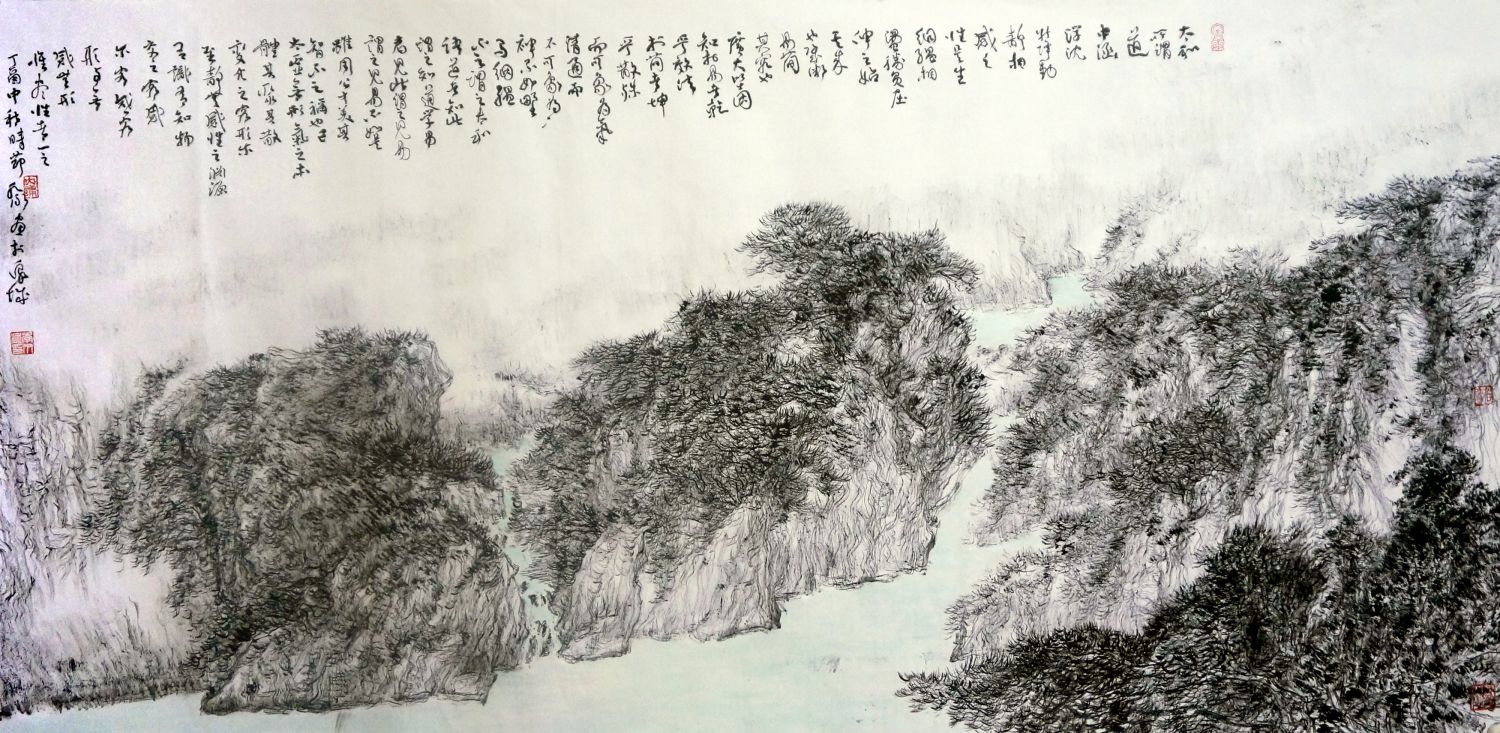 太和
所謂
道
中涵
浮沈
升降動
靜相
感之
性是生
絪縕相
盪勝負屈
伸之始
其來
也幾微
易簡
其究也
廣大堅固
知於易者乾
乎效法
於簡者坤
乎散殊
而可象為氣
清通而
不可象為
神不如野
馬絪縕
不足謂之太和
語道者知此
謂之知道學易
者見此謂之見易
謂之見易不如是
雖周公才美其
智不足稱也已
太虛無形氣之本
體其聚其散
變化之客形尔
至靜無感性之淵源
有識有知物
交之客感
尔客感客
形与无
感無形
惟盡性者一之
丁酉中秋時節 畫於濠城